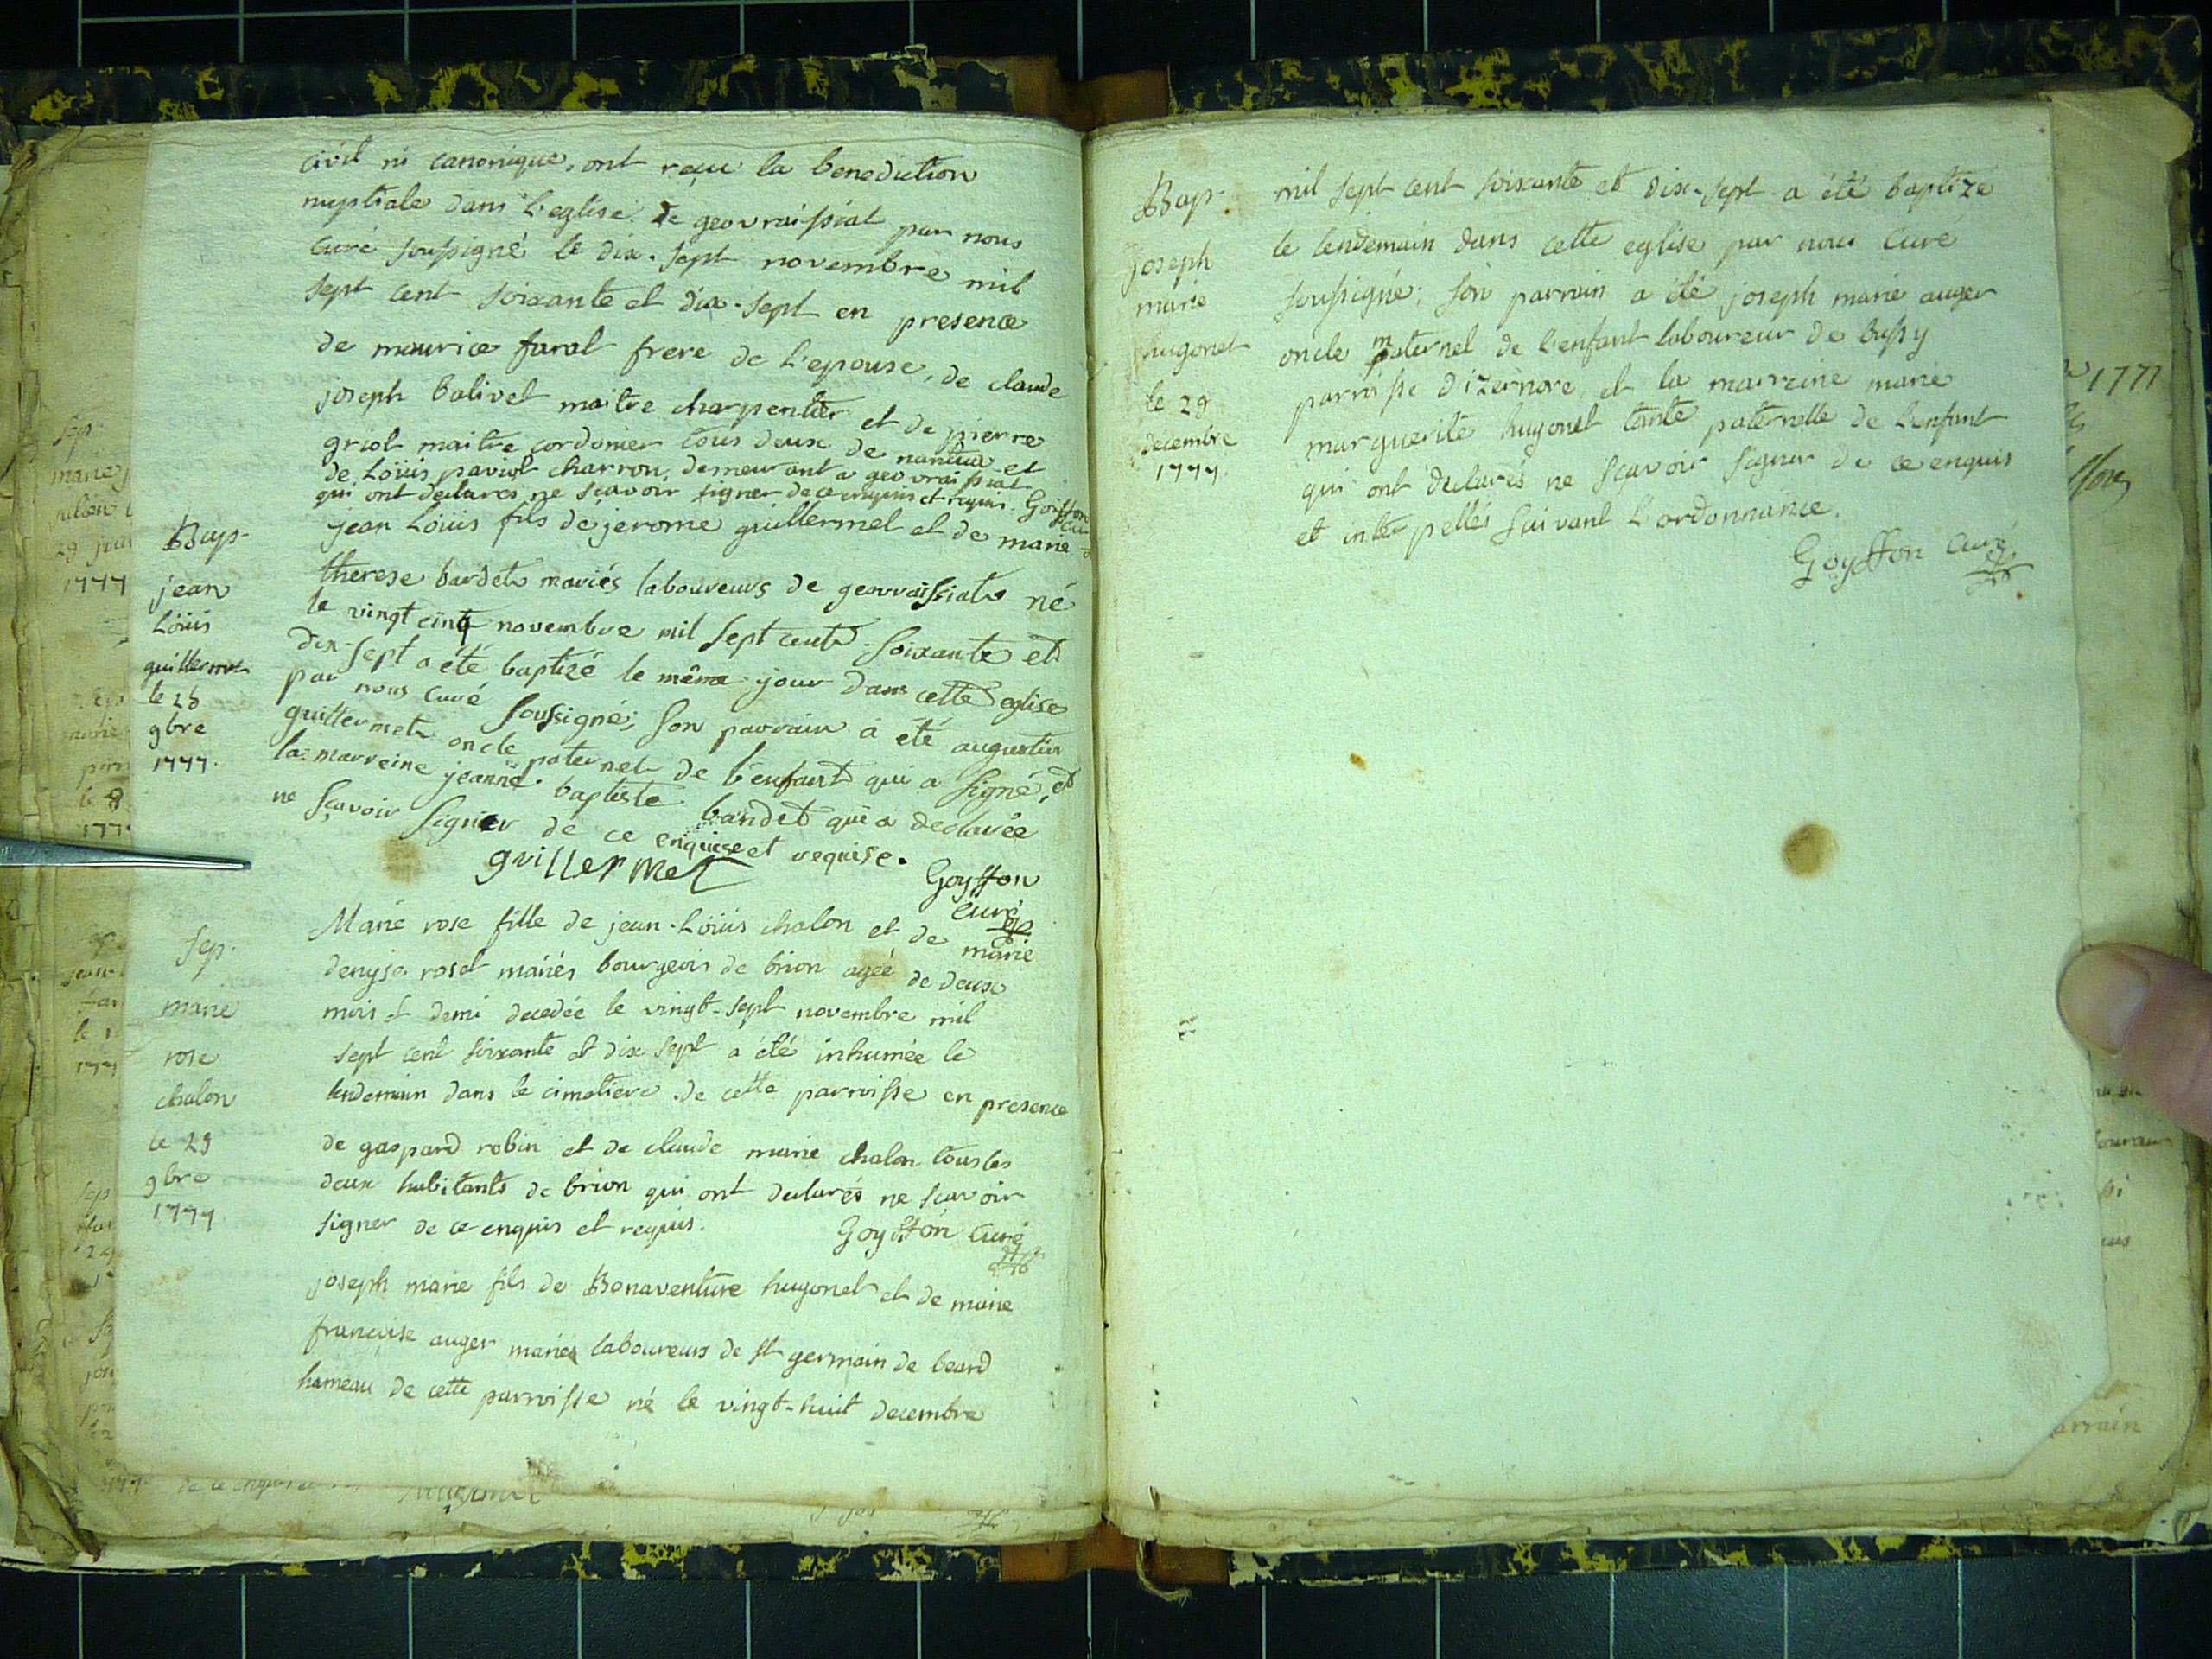 civil ni canonique, ont reçu la benediction
nuptiale dans l'eglise de geovraissiat par nous
curé soussigné le dix-sept novembre mil
sept cent soixante et dix-sept en presence
de maurice faral frere de l'epouse, de claude
joseph balivet maitre charpentier et de pierre
griot maitre cordonier tous deux de nantua et
de Loüis paviot charron demeurant a geovraissiat
qui ont declarés ne scavoir signer de ce enquis et requis. Goyffon
curé
Bap.
jean
Loüis
guillermet
le 25
9bre
1777.
jean Loüis fils de jerome guillermet et de marie
therese bardet mariés laboureurs de geovraissiat né
le vingt cinq novembre mil sept cent soixante et
dix-sept a été baptizé le même jour dans cette eglise
par nous curé soussigné; son parrain a été augustin
guillermet oncle paternel de l'enfant qui a signé, et
la marreine jeanne baptiste bardet qui a declarée
ne sçavoir signer de ce enquise et requise.
guillermet
Goyffon
curé
Sep.
marie
rose
chalon
le 29
9bre
1777
Marie rose fille de jean-Loüis chalon et de marie
denyse roset mariés bourgeois de brion agée de deux
mois et demi decedée le vingt-sept novembre mil
sept cent soixante et dix sept a été inhumée le
lendemain dans le cimetiere de cette parroisse en presence
de gaspard robin et de claude marie chalon tous les
deux habitants de brion qui ont declarés ne scavoir
signer de ce enquis et requis.
Goyffon curé
joseph marie fils de Bonaventure hugonet et de marie
françoise auger mariés laboureurs de st germain de beard
hameau de cette parroisse né le vingt-huit decembre
Bap.
joseph
marie
hugonet
le 29
decembre
1777.
mil sept cent soixante et dix-sept a été baptizé
le lendemain dans cette eglise par nous curé
soussigné; son parrain a été joseph marie auger
oncle maternel de l'enfant laboureur de bussy
parroisse d'izernore, et la marreine marie
marguerite hugonet tante paternelle de l'enfant
qui ont declarés ne sçavoir signer de ce enquis
et interpellés suivant l'ordonnance.
Goyffon curé
1777